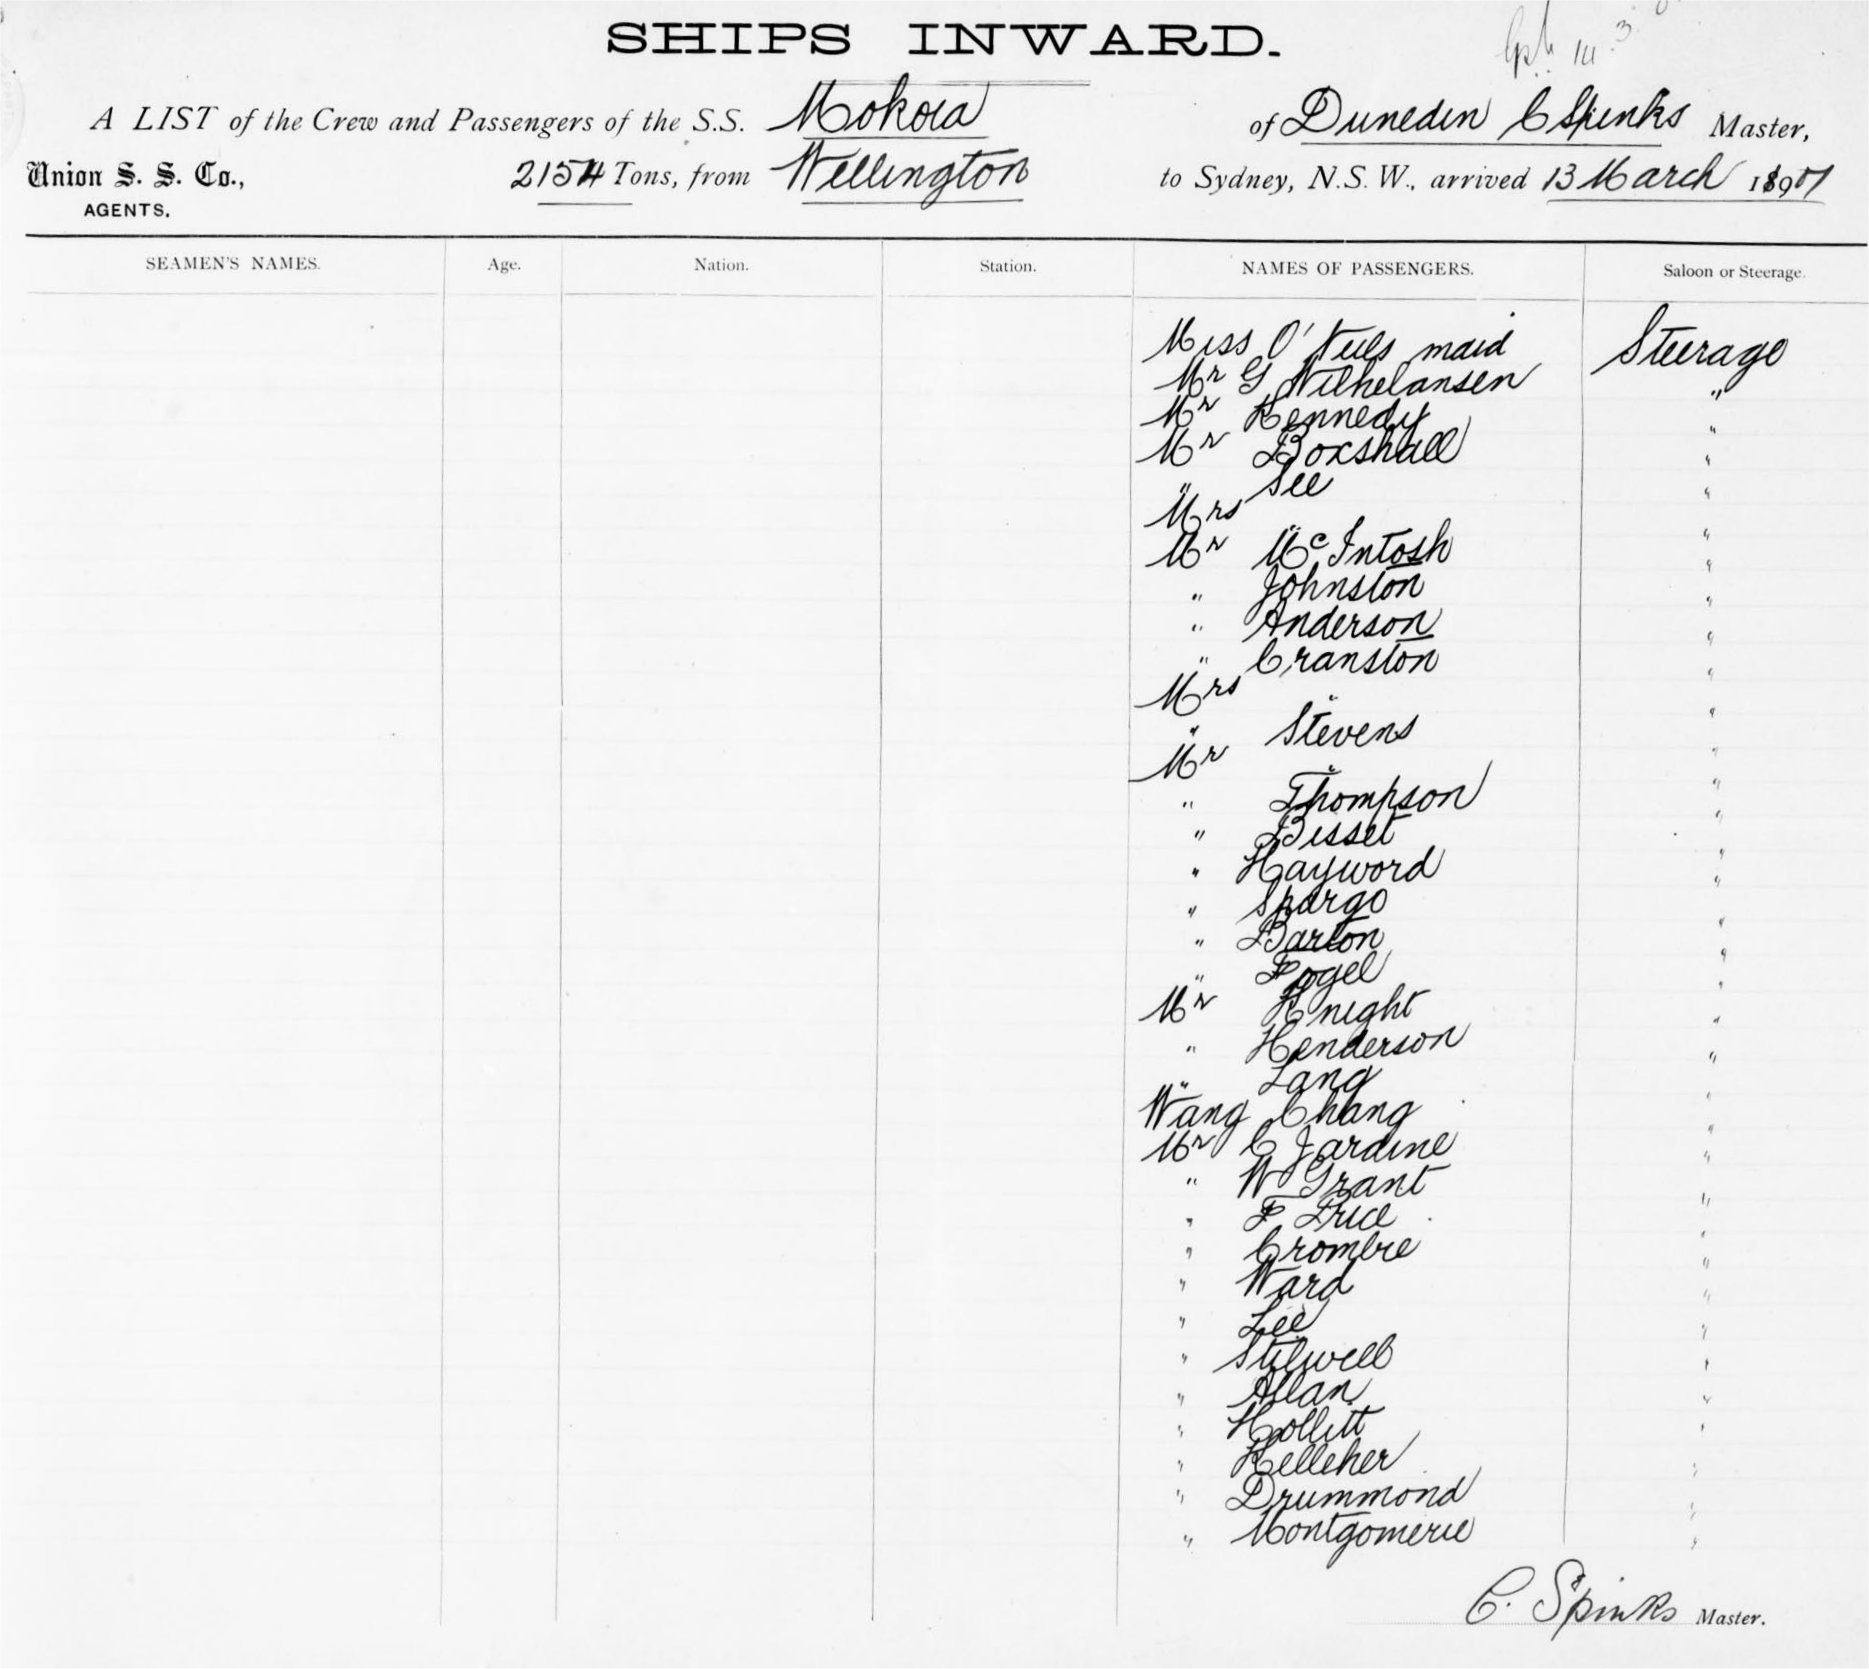 SHIPS INWARD.
A LIST of the Crew and Passengers of the S.S. Mokoia of Dunedin C Spinks Master,
Union S. S. Co., 2154 Tons, from Wellington to Sydney, N.S.W., arrived 13 March
AGENTS.
SEAMEN'S NAMES. Age. Nation. Station. NAMES OF PASSENGERS. Saloon or Steerage.
Miss O'Neils maid Steerage
Mr G Wilhelansen "
Mr Kennedy "
Mr Boxshall "
" See "
Mrs " "
Mr McIntosh "
" Johnston "
" Anderson "
" Cranston "
Mrs " "
" Stevens "
Mr " "
" Thompson "
" Bisset "
" Hayword "
" Spargo "
" Barton "
" Fogel "
Mr Knight "
" Henderson "
" Lang "
Wang Chang "
Mr C Jardine "
" W Grant "
" F Price "
" Crombie "
" Ward "
" Lee "
" Stilwell "
" Allan "
" Hollitt "
" Kelleher "
" Drummond "
" Montgomerie "
C. Spinks Master.